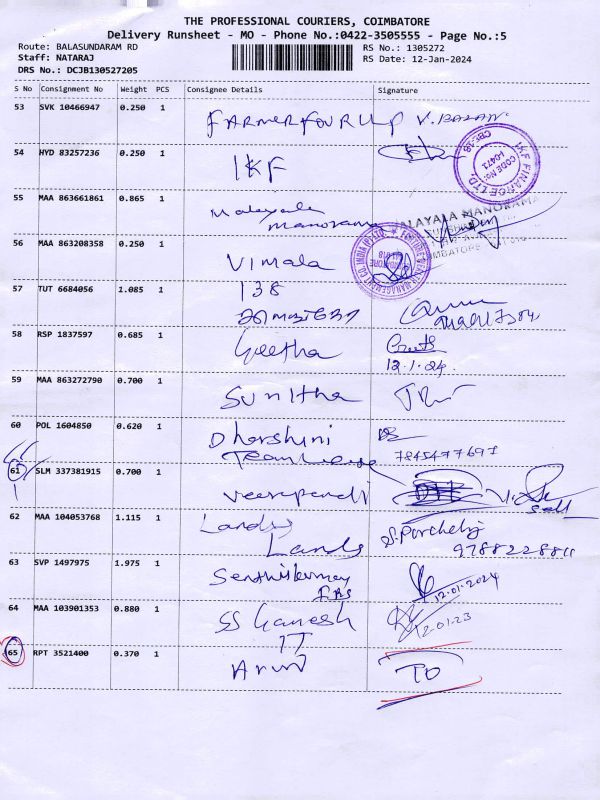 THE PROFESSIONAL COURIERS, COIMBATORE
Delivery Runsheet - MO - Phone No.:0422-3505555 - Page No.:5
Route: BALASUNDARAM RD RS No.: 1305272
Staff: NATARAJ RS Date: 12-Jan-2024
DRS No.: DCJB130527205
S No Consignment No Weight PCS Consignee Details Signature
53 SVK 10466947 0.250 1
FARMER FOUR UP V. BALAN
54 HYD 83257236 0.250 1
IKF
IKF FINANCE LTD.
CODE No.:
CBE-18
55 MAA 863661861 0.865 1
Malayala
manorama
MALAYALA MANORAMA
56 MAA 863208358 0.250 1
Vimala
57 TUT 6684056 1.085 1
138
58 RSP 1837597 0.685 1
Geetha
12.1.24
59 MAA 863272790 0.700 1
Sunitha
60 POL 1604850 0.620 1
Dharshini
Teamlease 7845477697
61 SLM 337381915 0.700 1
Veerapandi
Self
62 MAA 104053768 1.115 1
Lands
Lands 9788228811
63 SVP 1497975 1.975 1
Senthilkumar
12.01.2024
64 MAA 103901353 0.880 1
SS Ganesh
12.01.23
IT
65 RPT 3521400 0.370 1
Arun TO